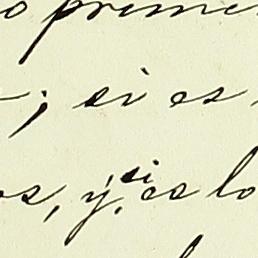 o primer
; si es
os, y si es lo